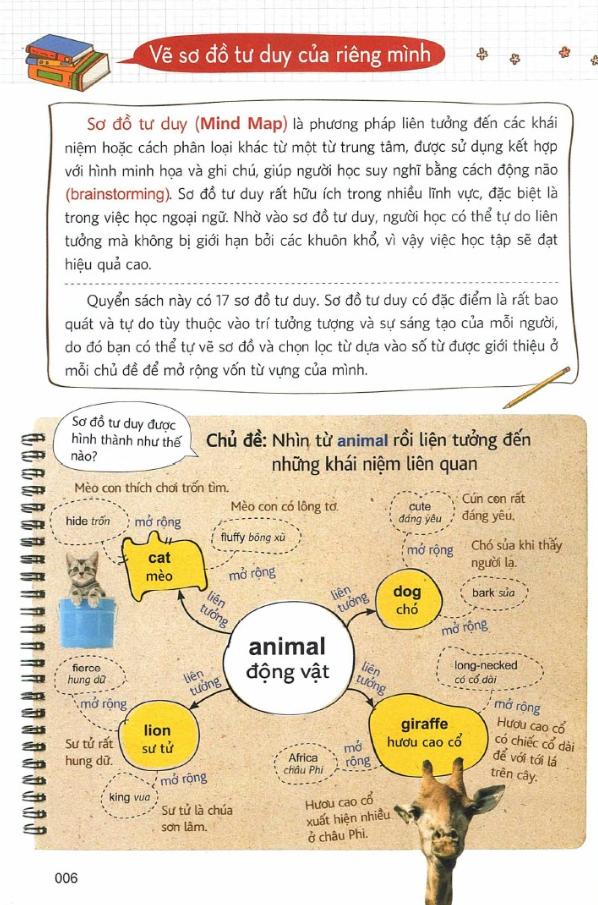 Vẽ sơ đồ tư duy của riêng mình
Sơ đồ tư duy (Mind Map) là phương pháp liên tưởng đến các khái
niệm hoặc cách phân loại khác từ một từ trung tâm, được sử dụng kết hợp
với hình minh họa và ghi chú, giúp người học suy nghĩ bằng cách động não
(brainstorming). Sơ đồ tư duy rất hữu ích trong nhiều lĩnh vực, đặc biệt là
trong việc học ngoại ngữ. Nhờ vào sơ đồ tư duy, người học có thể tự do liên
tưởng mà không bị giới hạn bởi các khuôn khổ, vì vậy việc học tập sẽ đạt
hiệu quả cao.
Quyển sách này có 17 sơ đồ tư duy. Sơ đồ tư duy có đặc điểm là rất bao
quát và tự do tùy thuộc vào trí tưởng tượng và sự sáng tạo của mỗi người,
do đó bạn có thể tự vẽ sơ đồ và chọn lọc từ dựa vào số từ được giới thiệu ở
mỗi chủ đề để mở rộng vốn từ vựng của mình.
Sơ đồ tư duy được
hình thành như thế
nào?
Chủ đề: Nhìn từ animal rồi liện tưởng đến
những khái niệm liên quan
Mèo con thích chơi trốn tìm.
hide trốn
mở rộng
Mèo con có lông tơ.
fluffy bông xù
mở rộng
cat
mèo
liên
tưởng
cute
đáng yêu
Cún con rất
đáng yêu.
mở rộng
Chó sủa khi thấy
người lạ.
dog
chó
bark sủa
mở rộng
liên
tưởng
animal
động vật
fierce
hung dữ
mở rộng
Sư tử rất
hung dữ.
lion
sư tử
liên
tưởng
mở rộng
king vua
Sư tử là chúa
sơn lâm.
liên
tưởng
long-necked
có cổ dài
mở rộng
giraffe
hươu cao cổ
Hươu cao cổ
có chiếc cổ dài
để với tới lá
trên cây.
Africa
châu Phi
mở
rộng
Hươu cao cổ
xuất hiện nhiều
ở châu Phi.
006